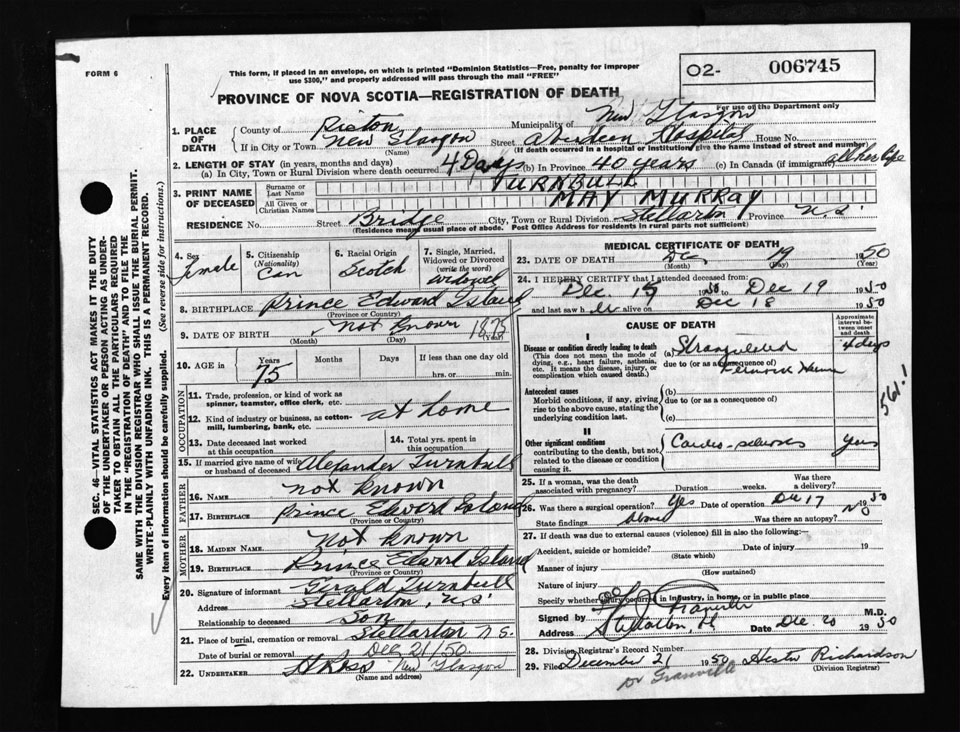 FORM 6
This form, if placed in an envelope, on which is printed "Dominion Statistics—Free, penalty for improper
use $300," and properly addressed will pass through the mail "FREE"
O2- 006745
PROVINCE OF NOVA SCOTIA—REGISTRATION OF DEATH
For use of the Department only
1. PLACE OF DEATH
County of Pictou Municipality of New Glasgow
If in City or Town New Glasgow Street Aberdeen Hospital House No.
(Name) (If death occurred in a hospital or institution give the name instead of street and number)
2. LENGTH OF STAY (in years, months and days)
(a) In City, Town or Rural Division where death occurred 4 Days (b) In Province 40 years (c) In Canada (if immigrant) all her life
3. PRINT NAME OF DECEASED
Surname or Last Name TURNBULL
All Given or Christian Names MAY MURRAY
RESIDENCE No. Street Bridge City, Town or Rural Division Stellarton Province N.S.
(Residence means usual place of abode. Post Office Address for residents in rural parts not sufficient)
4. Sex Female
5. Citizenship (Nationality) Can
6. Racial Origin Scotch
7. Single, Married, Widowed or Divorced (write the word) widowed
8. BIRTHPLACE Prince Edward Island
(Province or Country)
9. DATE OF BIRTH not known 1875
(Month) (Day) (Year)
10. AGE in Years Months Days If less than one day old
75 hrs. or min.
OCCUPATION
11. Trade, profession, or kind of work as
spinner, teamster, office clerk, etc.
12. Kind of industry or business, as cotton-
mill, lumbering, bank, etc. at home
13. Date deceased last worked
at this occupation
14. Total yrs. spent in
this occupation
15. If married give name of wife
or husband of deceased Alexander Turnbull
FATHER
16. NAME not known
17. BIRTHPLACE Prince Edward Island
(Province or Country)
MOTHER
18. MAIDEN NAME not known
19. BIRTHPLACE Prince Edward Island
(Province or Country)
20. Signature of informant Gerald Turnbull
Address Stellarton, N.S.
Relationship to deceased Son
21. Place of burial, cremation or removal Stellarton N.S.
Date of burial or removal Dec 21/50
22. UNDERTAKER New Glasgow
(Name and address)
MEDICAL CERTIFICATE OF DEATH
23. DATE OF DEATH Dec 19 1950
(Month) (Day) (Year)
24. I HEREBY CERTIFY that I attended deceased from:
Dec 15 1950 to Dec 19 1950
and last saw her alive on Dec 18 1950
CAUSE OF DEATH
Approximate interval between onset and death
I
Disease or condition directly leading to death
(This does not mean the mode of
dying, e.g., heart failure, asthenia,
etc. It means the disease, injury, or
complication which caused death.)
(a) Strangulated 4 days
due to (or as a consequence of)
Femoral Hernia
Antecedent causes
Morbid conditions, if any, giving
rise to the above cause, stating the
underlying condition last.
(b)
due to (or as a consequence of:)
(c)
561.1
II
Other significant conditions
contributing to the death, but not
related to the disease or condition
causing it.
Cardio-sclerosis Years
25. If a woman, was the death
associated with pregnancy? Duration weeks. Was there
a delivery?
26. Was there a surgical operation? Yes Date of operation Dec 17 1950
State findings above Was there an autopsy? No
27. If death was due to external causes (violence) fill in also the following:
Accident, suicide or homicide? Date of injury 19
(State which)
Manner of injury
(How sustained)
Nature of injury
Specify whether injury occurred in industry, in home, or in public place
Signed by M.D.
Address Stellarton, Date Dec 20 1950
28. Division Registrar's Record Number
29. Filed December 21 1950 Hester Richardson
(Division Registrar)
Dr Granville
SEC. 46—VITAL STATISTICS ACT MAKES IT THE DUTY
OF THE UNDERTAKER OR PERSON ACTING AS UNDER-
TAKER TO OBTAIN ALL THE PARTICULARS REQUIRED
IN THE "REGISTRATION OF DEATH" AND TO FILE THE
SAME WITH THE DIVISION REGISTRAR WHO SHALL ISSUE THE BURIAL PERMIT.
WRITE-PLAINLY WITH UNFADING INK. THIS IS A PERMANENT RECORD.
Every item of information should be carefully supplied. (See reverse side for instructions.)